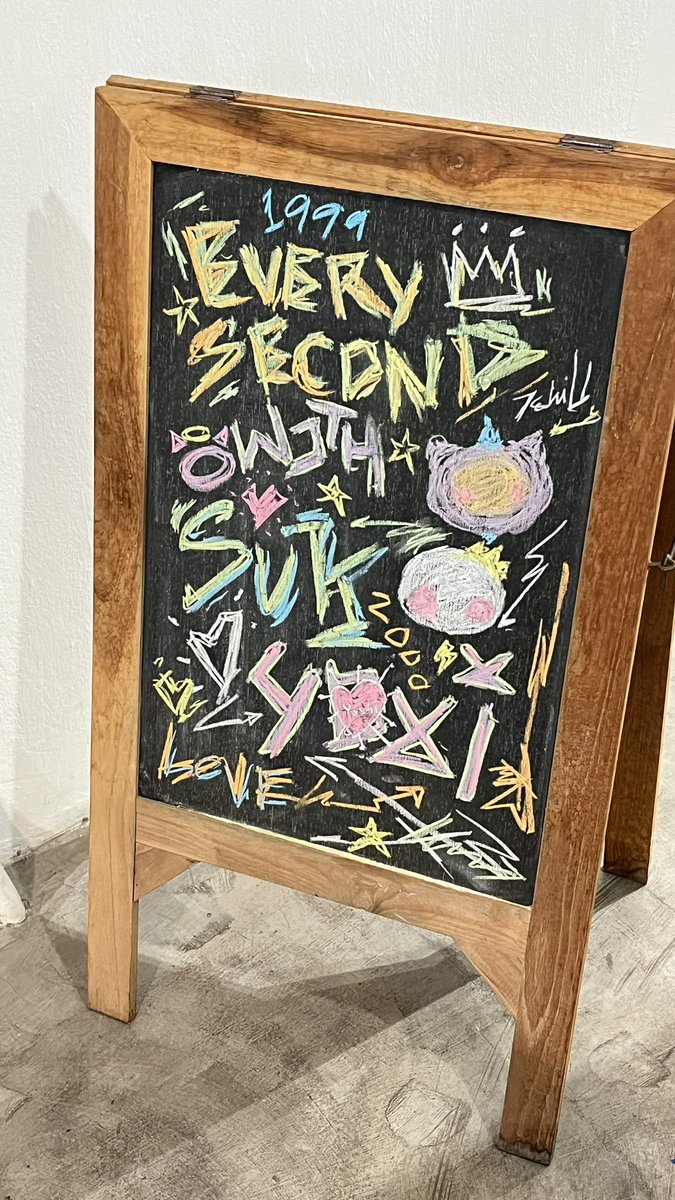 1999
EVERY
SECOND
WITH
SUK
2000
YOXI
LOVE